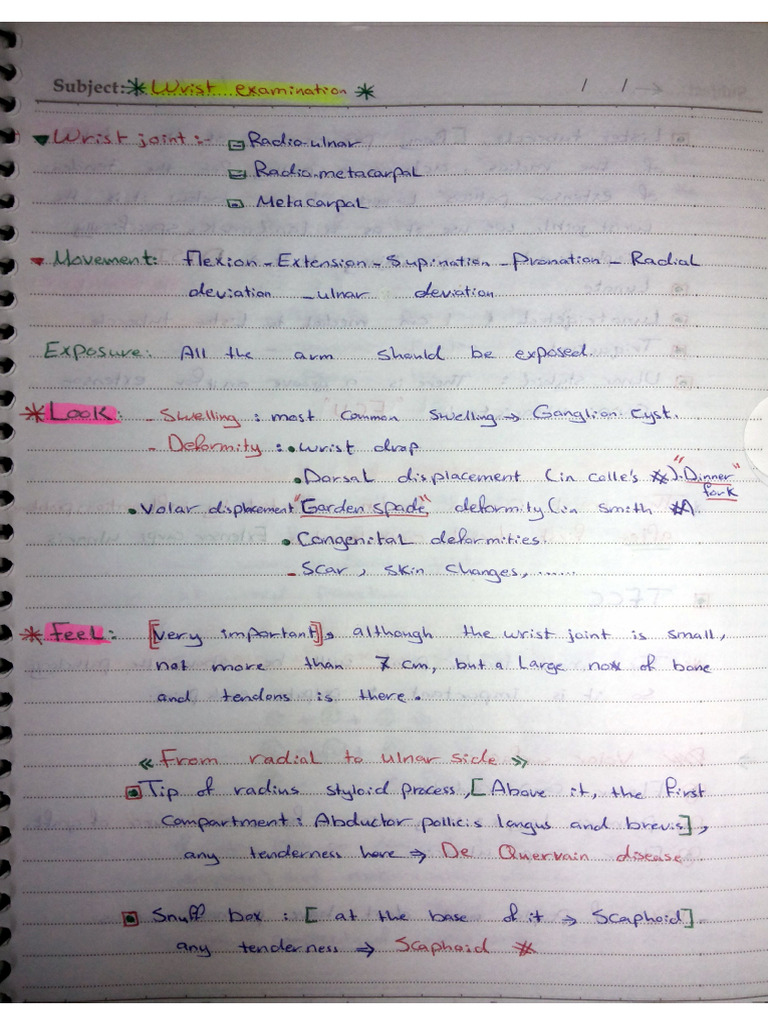 Subject: * Wrist examination * / /
Wrist joint :- Radio-ulnar
Radio-metacarpal
Metacarpal
Movement: flexion - Extension - Supination - Pronation - Radial
deviation - ulnar deviation
Exposure: All the arm should be exposed.
* Look: - Swelling : most common swelling → Ganglion cyst.
- Deformity : • wrist drop
• Dorsal displacement (in colle's #). "Dinner
fork"
• Volar displacement "Garden spade" deformity (in Smith #).
• Congenital deformities.
- Scar, skin changes, ......
* Feel: [very important], although the wrist joint is small,
not more than 7 cm, but a large no# of bone
and tendons is there.
« From radial to ulnar side »
Tip of radius styloid process, [Above it, the first
Compartment: Abductor pollicis longus and brevis],
any tenderness here → De Quervain disease
Snuff box : [ at the base of it → Scaphoid]
any tenderness → Scaphoid #